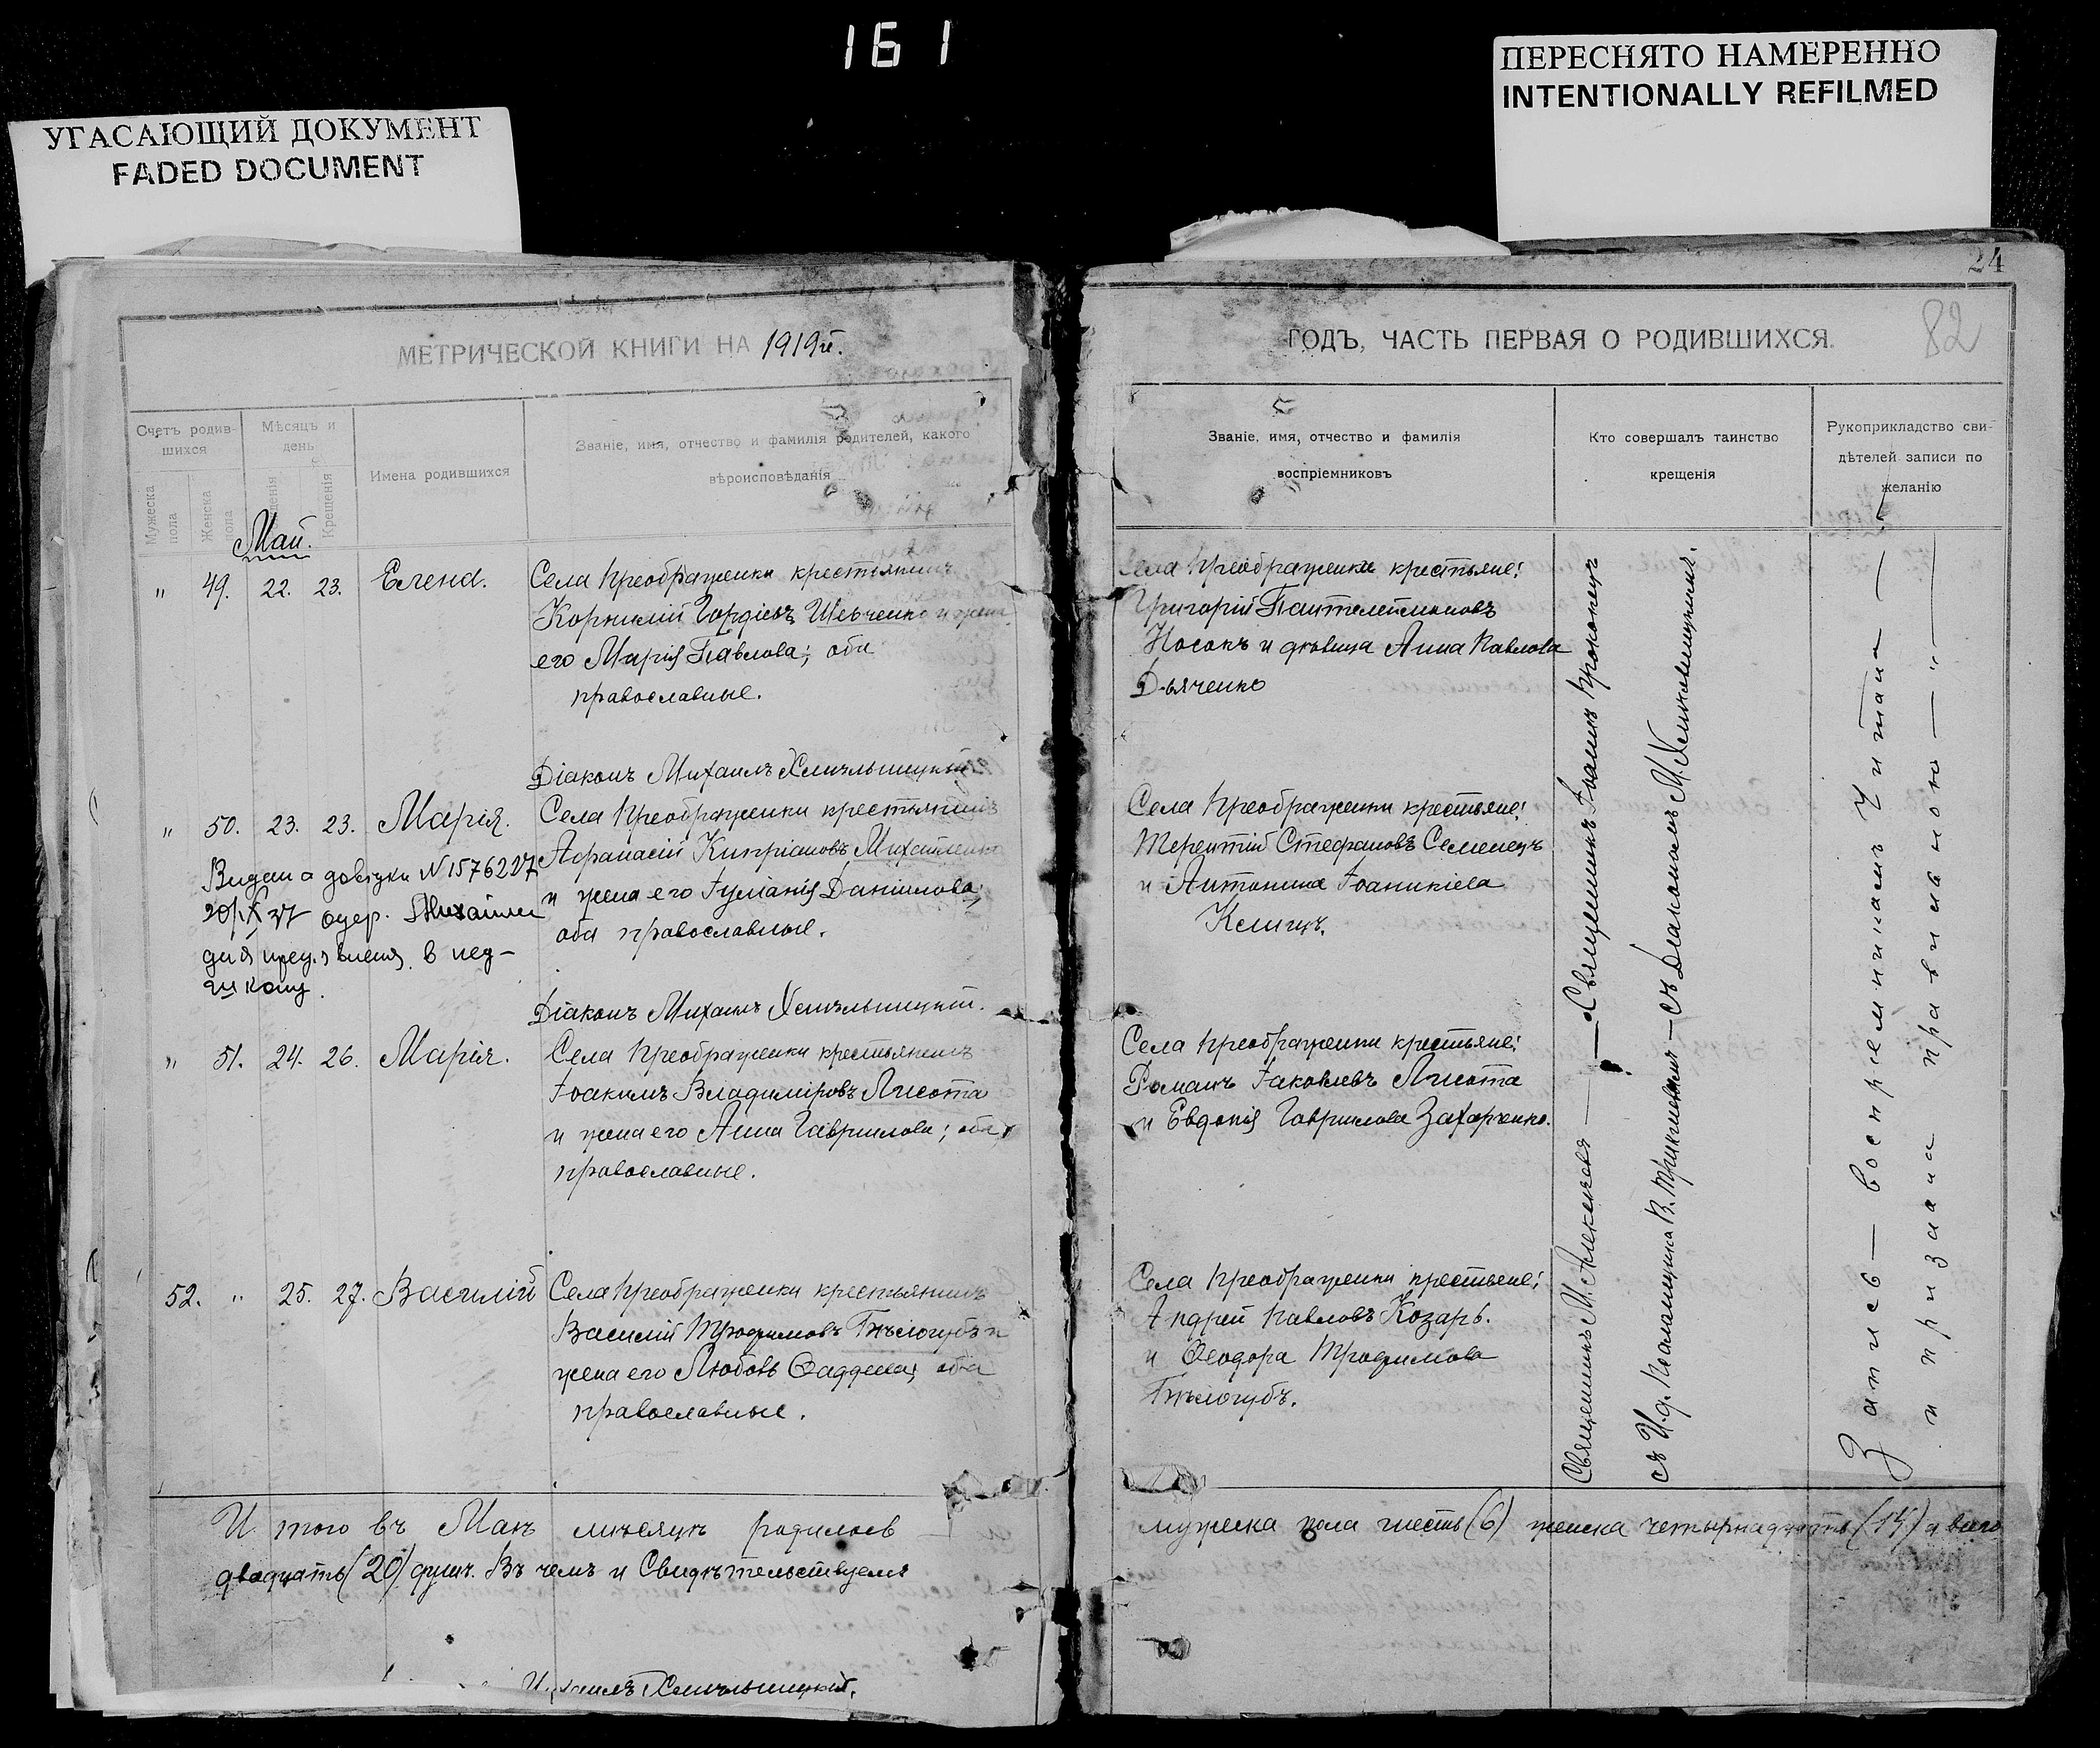 161
УГАСАЮЩИЙ ДОКУМЕНТ
FADED DOCUMENT
ПЕРЕСНЯТО НАМЕРЕННО
INTENTIONALLY REFILMED
24
82
МЕТРИЧЕСКОЙ КНИГИ НА 1919й.
Счетъ родив-
шихся
Мѣсяцъ и
день
Мужеска
пола
Женска
пола
Крещенія
Имена родившихся
Званіе, имя, отчество и фамилія родителей, какого
вѣроисповѣданія
Май.
" 49. 22. 23. Елена.
Села Преображенки крестьянинъ
Корнилій Гордіевъ Шевченко и жена
его Марія Павлова; оба
православные.
Діаконъ Михаилъ Хмѣльницкій
" 50. 23. 23. Марія.
Села Преображенки крестьянинъ
Афанасій Кипріановъ Михайленко
и жена его Іуліанія Даніилова;
оба православные.
Видана довідка N 1576227
в пед-
Діаконъ Михаилъ Хмѣльницкій.
" 51. 24. 26. Марія.
Села Преображенки крестьянинъ
Іоакимъ Владиміровъ Лисота
и жена его Анна Гавріилова; оба
православные.
52. " 25. 27. Василій
Села Преображенки крестьянинъ
Василій Трофимовъ Бѣлогубъ и
жена его Любовь Фаддеева; оба
православные.
Итого въ Маѣ мѣсяцѣ родилось
двадцать (20) душъ. Въ чемъ и Свидѣтельствуемъ
Михаилъ Хмѣльницкій.
ГОДЪ, ЧАСТЬ ПЕРВАЯ О РОДИВШИХСЯ.
Званіе, имя, отчество и фамилія
воспріемниковъ
Кто совершалъ таинство
крещенія
Рукоприкладство сви-
дѣтелей записи по
желанію
Села Преображенки крестьяне:
Григорій Пантелеимоновъ
Носокъ и дѣвица Анна Павлова
Дьяченко
Села Преображенки крестьяне:
Терентій Стефановъ Семенецъ
и Антонина Іоаникіева
Села Преображенки крестьяне:
Романъ Іаковлевъ Лисота
и Евдокія Гавріилова Захарченко.
Села Преображенки крестьяне:
Андрей Павловъ Козарь.
и Феодора Трофимова
Бѣлогубъ.
Священникъ М. Алексѣевъ — Священникъ Іоаннъ Прокопецъ
съ И.д. Псаломщика В. — съ Діакономъ М. Хмѣльницкимъ.
Запись — воспріемникамъ читана —
и признана правильною — " —
мужеска пола шесть (6) женска четырнадцать (14) а всего